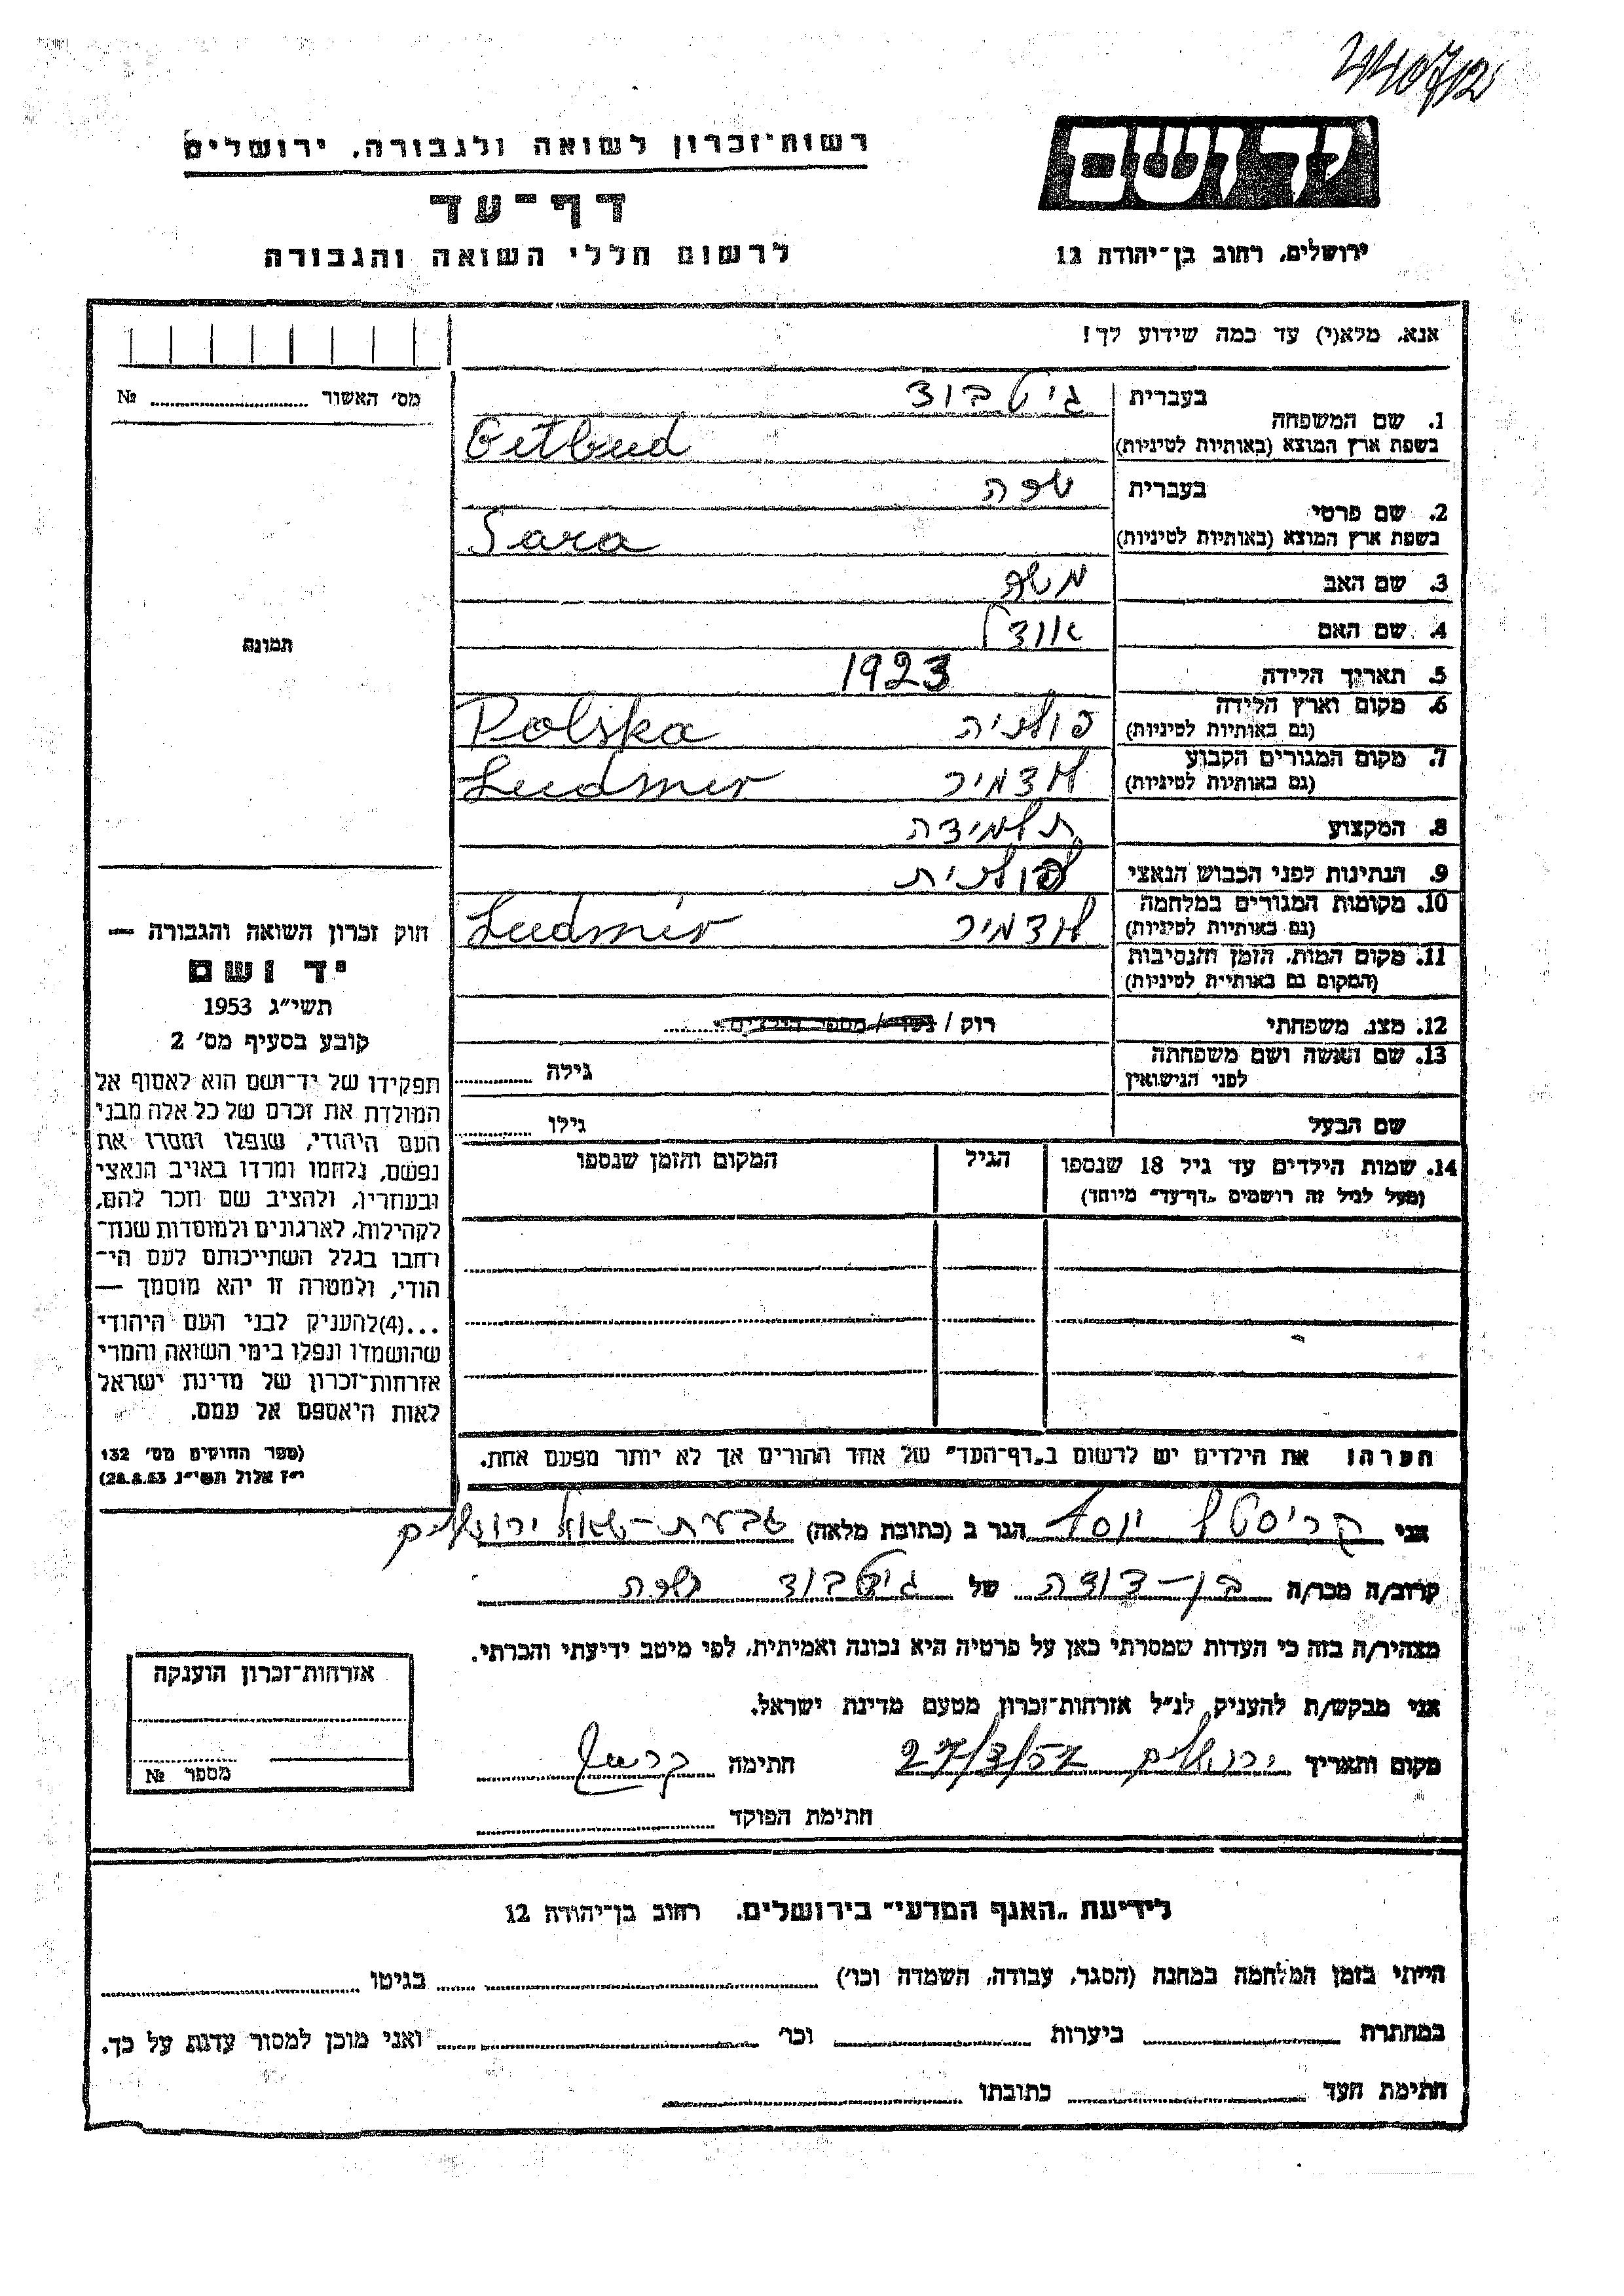 רשות־זכרון לשואה ולגבורה, ירושלים
דף־עד
לרשום חללי השואה והגבורה
יד ושם
ירושלים, רחוב בן־יהודה 12
אנא, מלא(י) עד כמה שידוע לך!
מס׳ האשור № 
1. שם המשפחה
בעברית גיטבוד
בשפת ארץ המוצא (באותיות לטיניות) Getbud
2. שם פרטי
בעברית שרה
בשפת ארץ המוצא (באותיות לטיניות) Sara
3. שם האב משה
4. שם האם אודל
5. תאריך הלידה 1923
6. מקום וארץ הלידה פולניה Polska
(גם באותיות לטיניות)
7. מקום המגורים הקבוע לודמיר Ludmir
(גם באותיות לטיניות)
8. המקצוע תלמידה
9. הנתינות לפני הכבוש הנאצי פולנית
10. מקומות המגורים במלחמה לודמיר Ludmir
(גם באותיות לטיניות)
11. מקום המות, הזמן והנסיבות
(המקום גם באותיות לטיניות)
12. מצב משפחתי רוק / נשוי / מספר הילדים
13. שם האשה ושם משפחתה
לפני הנישואין גילה
שם הבעל גילו
14. שמות הילדים עד גיל 18 שנספו הגיל המקום והזמן שנספו
(מעל לגיל זה רושמים „דף־עד״ מיוחד)
הערה! את הילדים יש לרשום ב„דף־העד״ של אחד ההורים אך לא יותר מפעם אחת.
תמונה
חוק זכרון השואה והגבורה —
יד ושם
תשי״ג 1953
קובע בסעיף מס׳ 2
תפקידו של יד־ושם הוא לאסוף אל
המולדת את זכרם של כל אלה מבני
העם היהודי, שנפלו ומסרו את
נפשם, נלחמו ומרדו באויב הנאצי
ובעוזריו, ולהציב שם וזכר להם,
לקהילות, לארגונים ולמוסדות שנח־
רחבו בגלל השתייכותם לעם הי־
הודי, ולמטרה זו יהא מוסמך —
...(4)להעניק לבני העם היהודי
שהושמדו ונפלו בימי השואה והמרי
אזרחות־זכרון של מדינת ישראל
לאות היאספם אל עמם.
(ספר החוקים מס׳ 132
י״ז אלול תשי״ג 28.8.53)
אני קריסטל יוסף הגר ב (כתובת מלאה) גבעת־שאול ירושלים
קרוב/ה מכר/ה בן־דודה של גיטבוד שרה
מצהיר/ה בזה כי העדות שמסרתי כאן על פרטיה היא נכונה ואמיתית, לפי מיטב ידיעתי והכרתי.
אני מבקש/ת להעניק לנ״ל אזרחות־זכרון מטעם מדינת ישראל.
מקום ותאריך ירושלים 27/3/57 חתימה
חתימת הפוקד
אזרחות־זכרון הוענקה
מספר №
לידיעת „האגף המדעי״ בירושלים, רחוב בן־יהודה 12
הייתי בזמן המלחמה במחנה (הסגר, עבודה, השמדה וכו׳) בגיטו
במחתרת ביערות וכו׳ ואני מוכן למסור עדות על כך.
חתימת העד כתובתו